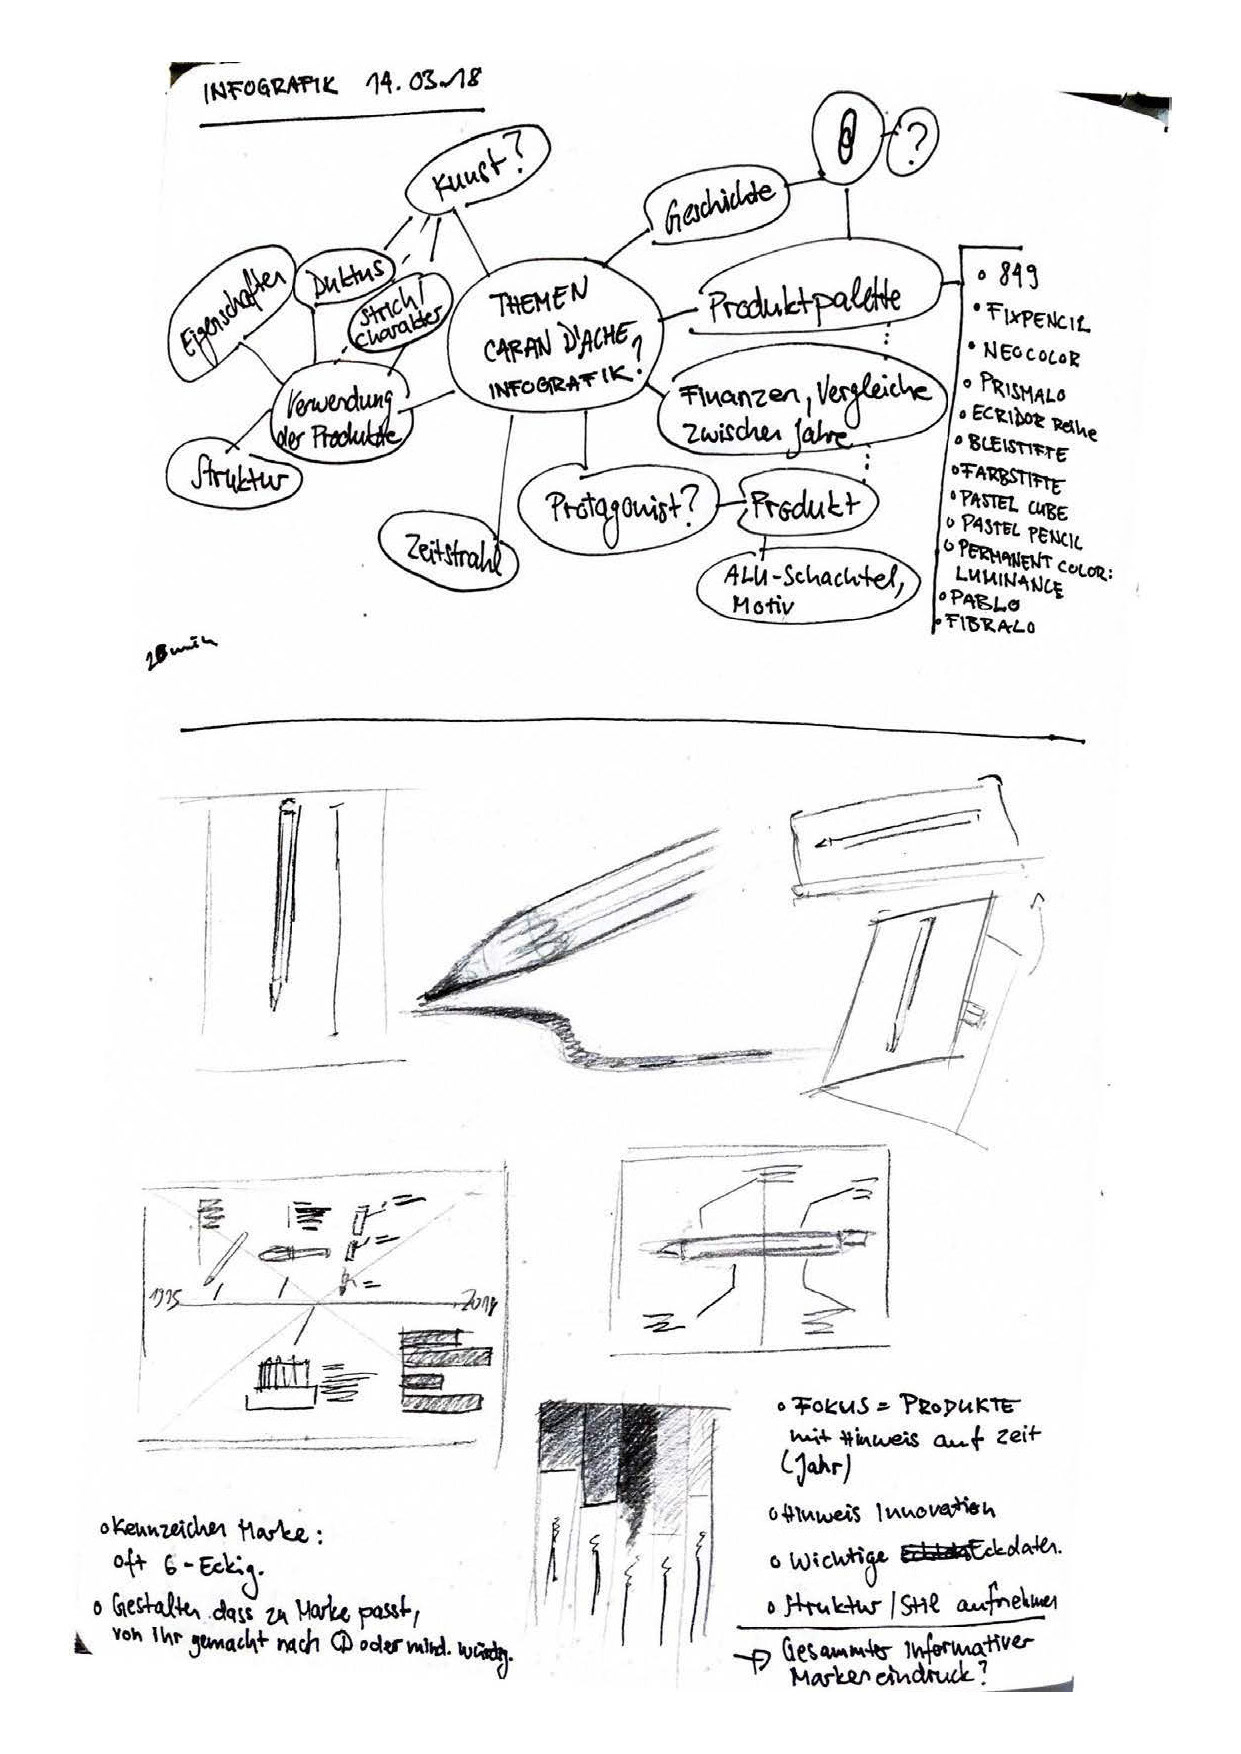 INFOGRAFIK 14.03.18
Kunst?
?
Geschichte
Eigenschaften
Duktus
Strich/
charakter
THEMEN
CARAN D'ACHE
INFOGRAFIK?
Produktpalette
Verwendung
der Produkte
Finanzen, Vergleiche
zwischen Jahre
Struktur
Protagonist?
Produkt
Zeitstrahl
ALU-Schachtel,
Motiv
849
FIXPENCIL
NEOCOLOR
PRISMALO
ECRIDOR Reihe
BLEISTIFTE
FARBSTIFTE
PASTEL CUBE
PASTEL PENCIL
PERMANENT COLOR:
LUMINANCE
PABLO
FIBRALO
min
2018
Kennzeichen Marke:
oft 6-Eckig.
Gestalten dass zu Marke passt,
von ihr gemacht nach oder mind. würdig.
FOKUS = PRODUKTE
mit Hinweis auf Zeit
(Jahr)
Hinweis Innovation
Wichtige Eckdaten.
Struktur/Stil aufnehmen
→ Gesammter Informativer
Markeneindruck?